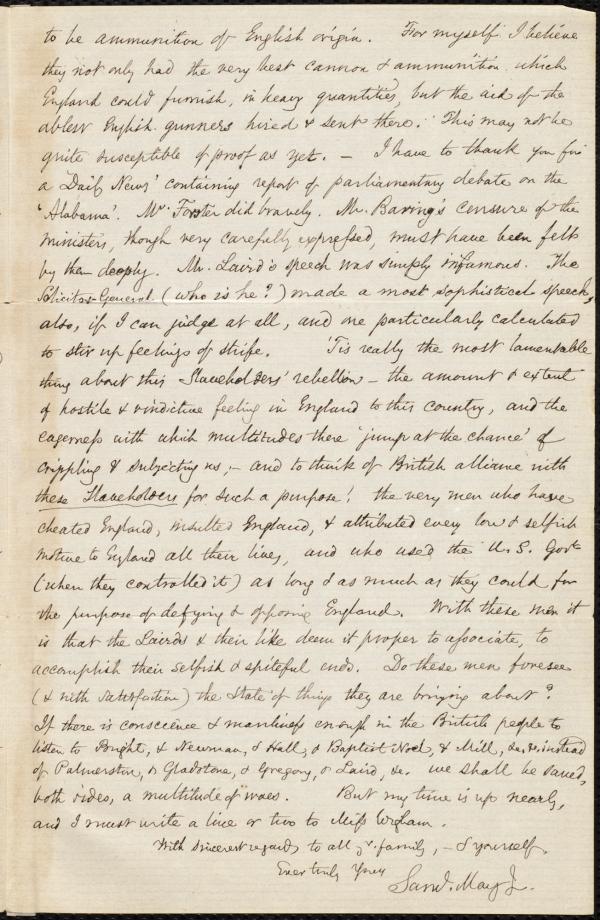 to be ammunition of English origin. For myself I believe
they not only had the very best cannon & ammunition which
England could furnish, in heavy quantities, but the aid of the
ablest English gunners hired & sent there. This may not be
quite susceptible of proof as yet. — I have to thank you for
a 'Daily News' containing report of parliamentary debate on the
'Alabama'. Mr. Forster did bravely. Mr. Baring's censure of the
ministers, though very carefully expressed, must have been felt
by them deeply. Mr. Laird's speech was simply infamous. The
Solicitor-General (who is he?) made a most sophistical speech,
also, if I can judge at all, and one particularly calculated
to stir up feelings of strife. 'Tis really the most lamentable
thing about this Slaveholders' rebellion — the amount & extent
of hostile & vindictive feeling in England to this country, and the
eagerness with which multitudes there 'jump at the chance' of
crippling & subjecting us, — and to think of British alliance with
these Slaveholders for such a purpose! the very men who have
cheated England, insulted England, & attributed every low & selfish
motive to England all their lives, and who used the U.S. Govt.
(when they controlled it) as long & as much as they could for
the purpose of defying & opposing England. With these men it
is that the Lairds & their like deem it proper to associate, to
accomplish their selfish & spiteful ends. Do these men foresee
(& with satisfaction) the state of things they are bringing about?
If there is conscience & manliness enough in the British people to
listen to Bright, & Newman, & Hall, & Baptist Noel, & Mill, &c. &c. instead
of Palmerston, & Gladstone, & Gregory, & Laird, &c. we shall be saved,
both sides, a multitude of woes. But my time is up nearly,
and I must write a line or two to Miss Wigham.
With sincerest regards to all yr. family, — & yourself.
Ever truly Yours
Saml. May Jr.